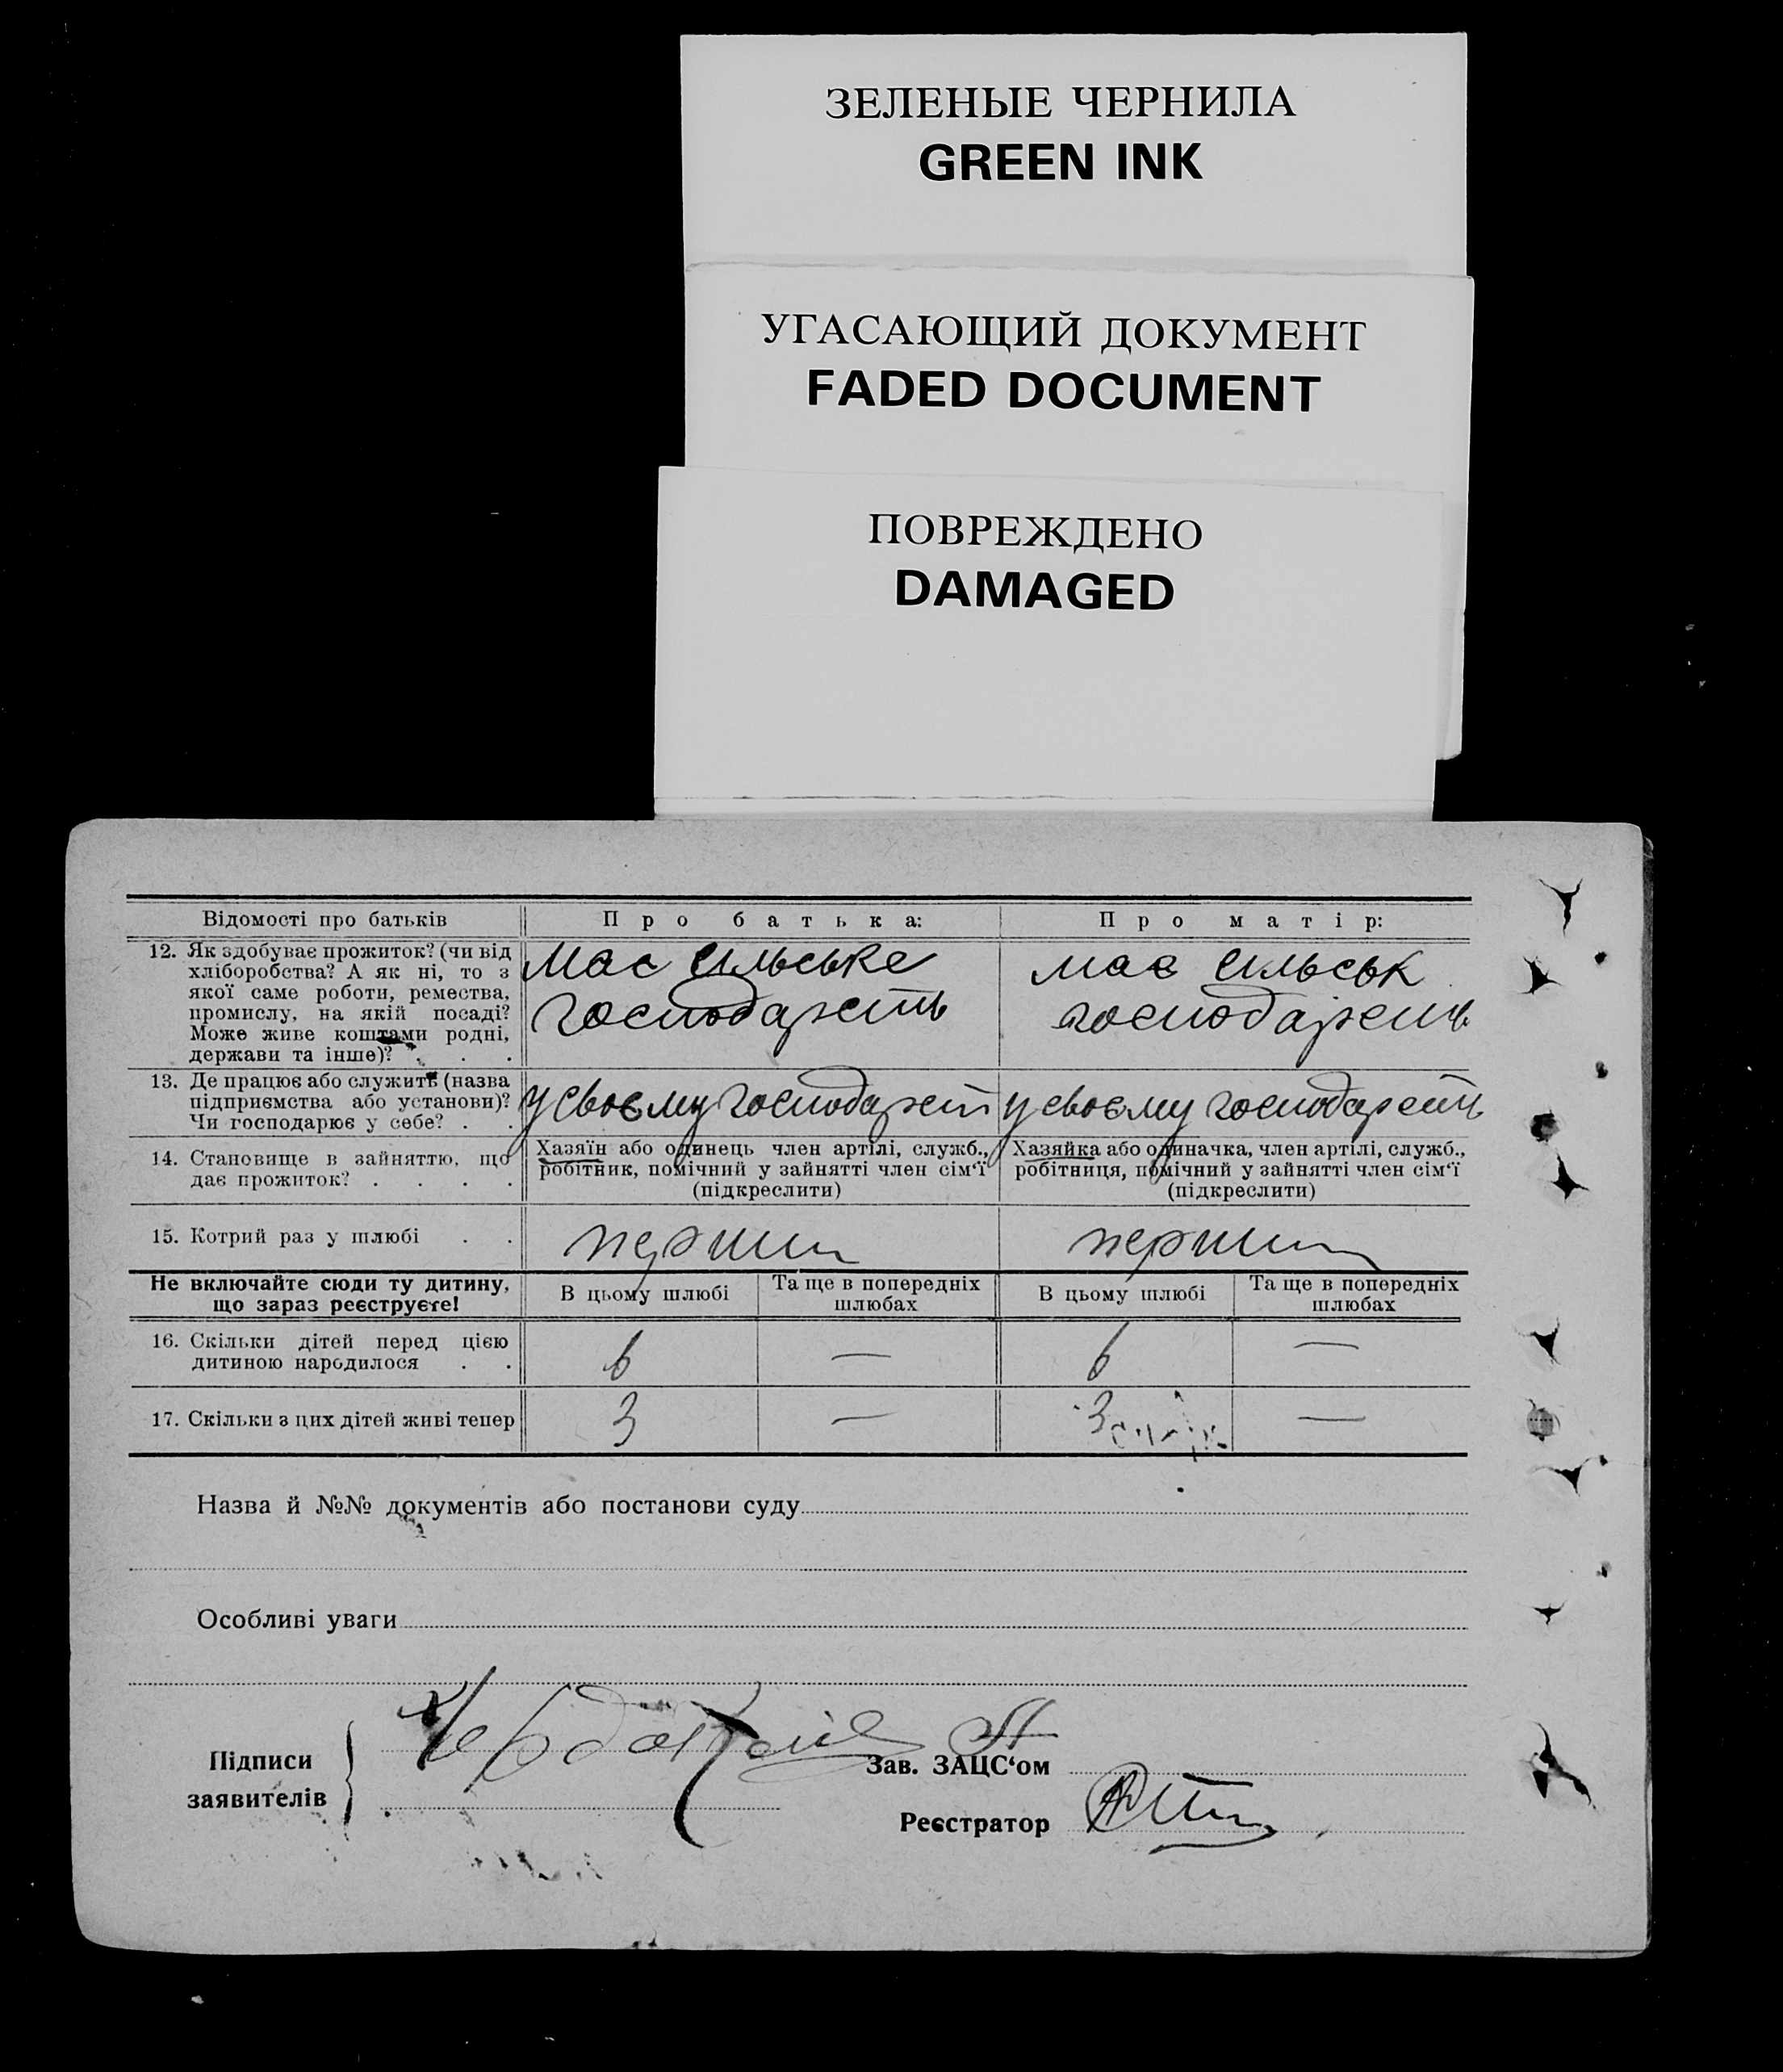 ЗЕЛЕНЫЕ ЧЕРНИЛА
GREEN INK
УГАСАЮЩИЙ ДОКУМЕНТ
FADED DOCUMENT
ПОВРЕЖДЕНО
DAMAGED
Відомості про батьків
Про батька:
Про матір:
12. Як здобуває прожиток? (чи від
хліборобства? А як ні, то з
якої саме роботи, ремества,
промислу, на якій посаді?
Може живе коштами родні,
держави та інше)? . . .
має сільське
господарств
має сільськ
господарств
13. Де працює або служить (назва
підприємства або установи)?
Чи господарює у себе? . .
у своєму господарст
у своєму господарств
14. Становище в зайняттю, що
дає прожиток? . . . .
Хазяїн або одинець член артілі, служб.,
робітник, помічний у зайнятті член сім‘ї
(підкреслити)
Хазяйка або одиначка, член артілі, служб.,
робітниця, помічний у зайнятті член сім‘ї
(підкреслити)
15. Котрий раз у шлюбі . .
перший
перший
Не включайте сюди ту дитину,
що зараз реєструєте!
В цьому шлюбі
Та ще в попередніх
шлюбах
В цьому шлюбі
Та ще в попередніх
шлюбах
16. Скільки дітей перед цією
дитиною народилося . .
6
—
6
—
17. Скільки з цих дітей живі тепер
3
—
3
—
Назва й №№ документів або постанови суду
Особливі уваги
Підписи
заявителів
Зав. ЗАЦС‘ом
Реєстратор